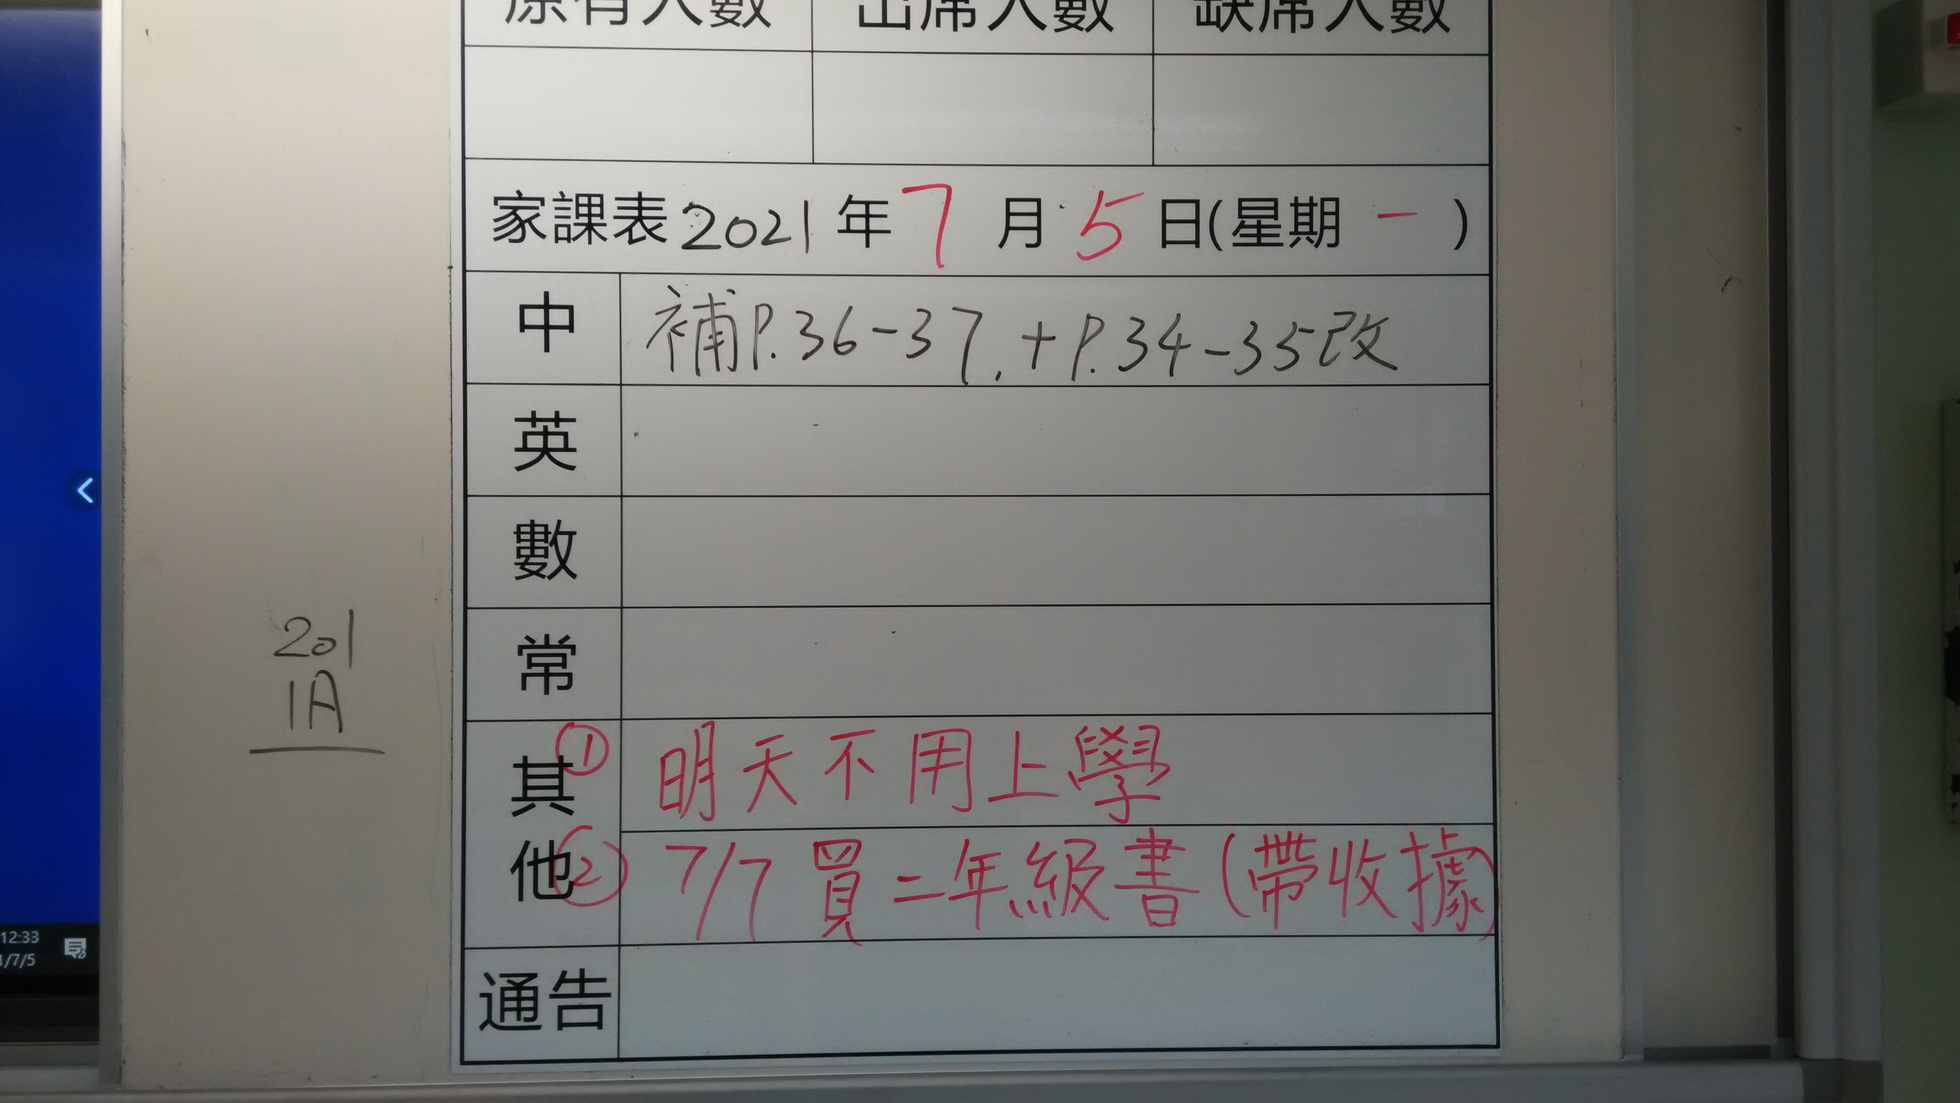 原有人數 出席人數 缺席人數
家課表2021年7月5日(星期一)
中 補P.36-37,+P.34-35改
英
數
常
其他 ①明天不用上學
②7/7買二年級書(帶收據)
通告
201
1A
12:33
1/7/5